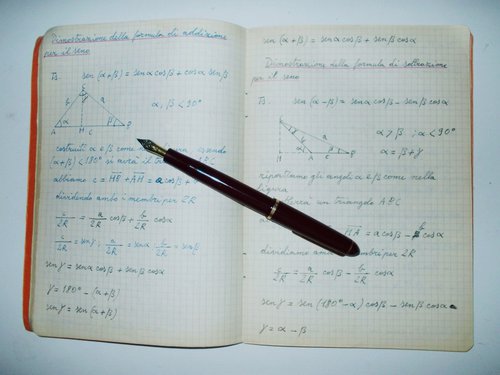 Dimostrazione della formula di addizione
per il seno
Ts. sen(α+β) = senα cosβ + cosα senβ
α, β < 90°
b a
α β
A H c B
costruiti α e β come
(α+β) < 180° si avrà il
abbiamo c = HB + AH = a cosβ +
dividendo ambo i membri per 2R
c/2R = a/2R cosβ + b/2R cosα
c/2R = senγ ; a/2R = senα ; b/2R = senβ
senγ = senα cosβ + senβ cosα
γ = 180° - (α+β)
senγ = sen(α+β)
sen(α+β) = senα cosβ + senβ cosα
Dimostrazione della formula di sottrazione
per il seno
Ts. sen(α-β) = senα cosβ - senβ cosα
α > β ; α < 90°
α = β + γ
H A c B
riportiamo gli angoli α e β come nella
figura
un triangolo ABC
HA = a cosβ - b cosα
dividiamo membri per 2R
a/2R cosβ - b/2R cosα
senγ = sen(180° - α) cosβ - senβ cosα
γ = α - β